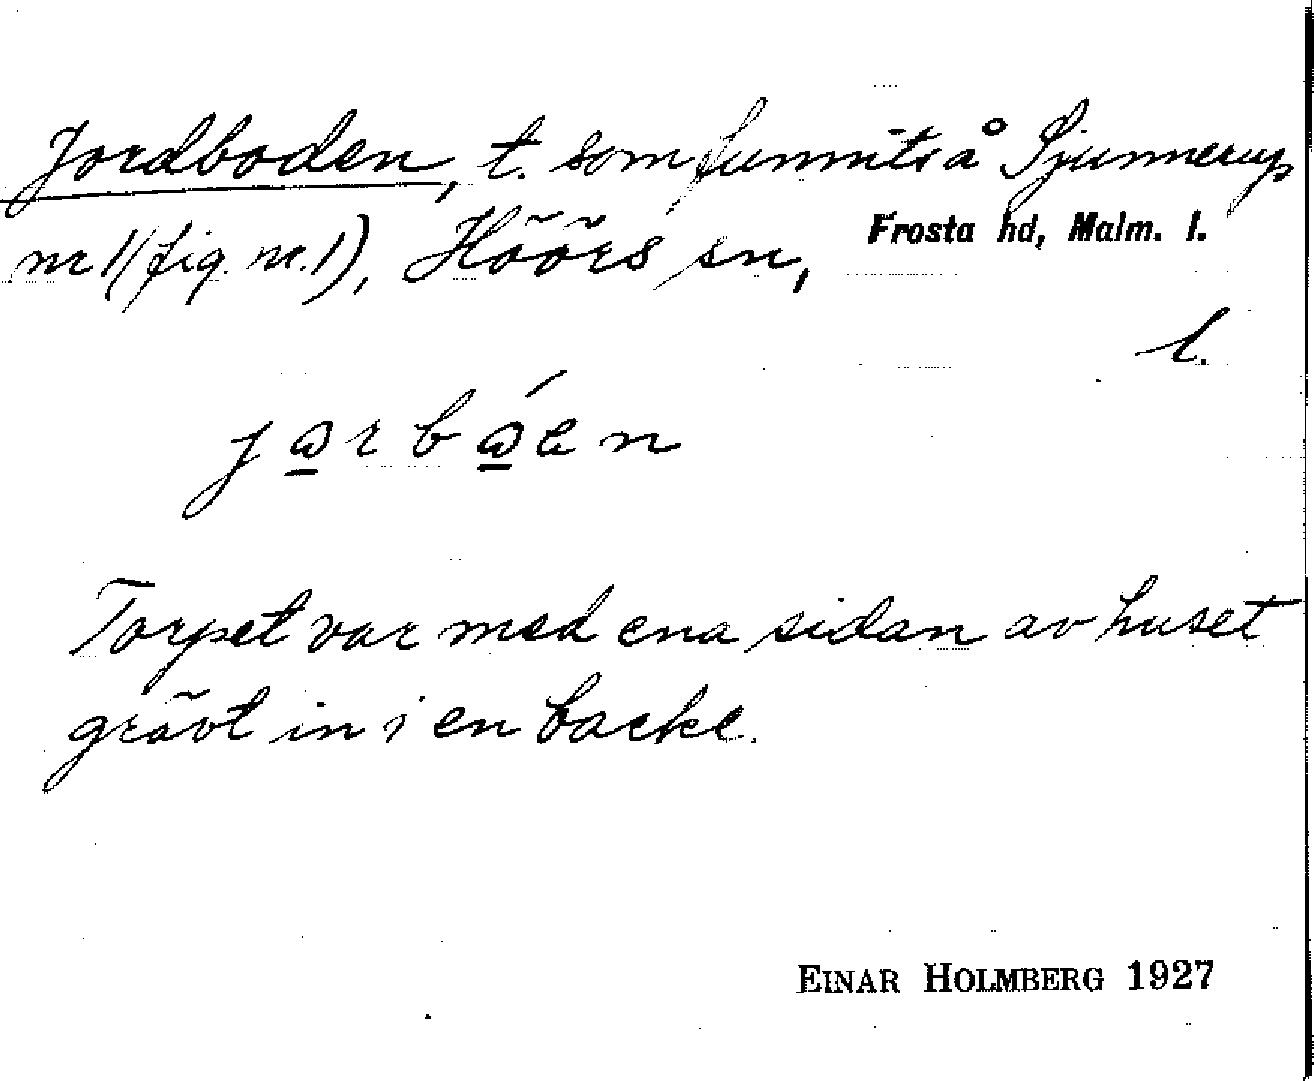 Jordboden, t. som funnits å Sjunnerup
nr 1 (fig. nr. 1), Höörs sn, Frosta hd, Malm. l.
l.
Torpet var med ena sidan av huset
grävt in i en backe.
EINAR HOLMBERG 1927